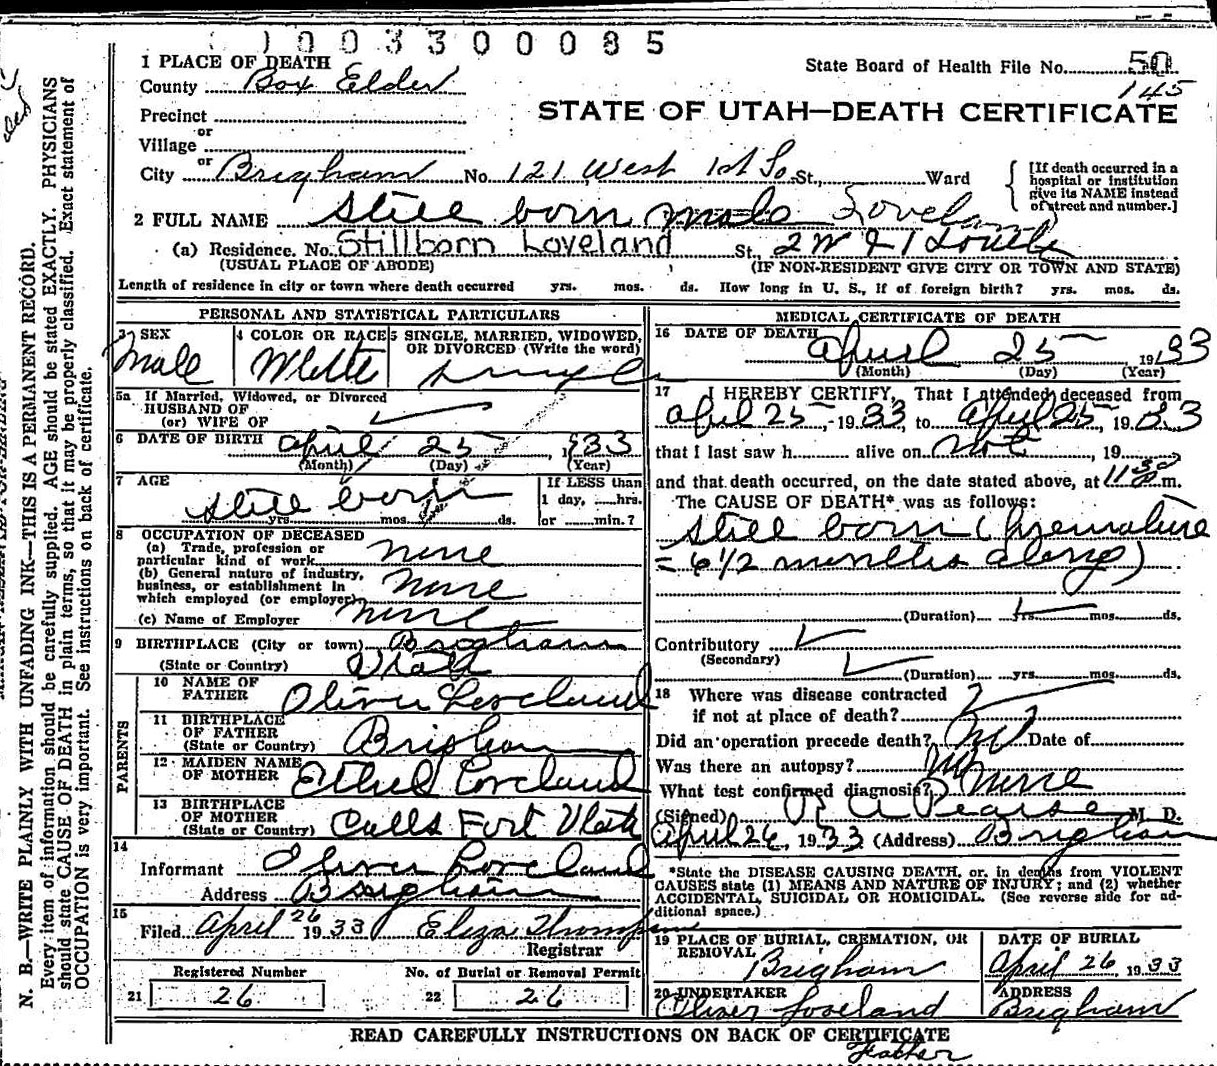 1003300085
1 PLACE OF DEATH
County Box Elder
State Board of Health File No. 50
145
Precinct
or
Village
or
City Brigham No. 121 West 1st So. St., Ward
STATE OF UTAH—DEATH CERTIFICATE
[If death occurred in a hospital or institution give its NAME instead of street and number.]
2 FULL NAME Still born male Loveland
(a) Residence. No. Stillborn Loveland St., 2 W & 1 South
(USUAL PLACE OF ABODE) (IF NON-RESIDENT GIVE CITY OR TOWN AND STATE)
Length of residence in city or town where death occurred yrs. mos. ds. How long in U. S., if of foreign birth? yrs. mos. ds.
PERSONAL AND STATISTICAL PARTICULARS
3 SEX
Male
4 COLOR OR RACE
White
5 SINGLE, MARRIED, WIDOWED, OR DIVORCED (Write the word)
Single
5a If Married, Widowed, or Divorced
HUSBAND OF
(or) WIFE OF
6 DATE OF BIRTH April 25, 1933
(Month) (Day) (Year)
7 AGE
still born
yrs. mos. ds.
If LESS than
1 day, hrs.
or min.?
8 OCCUPATION OF DECEASED
(a) Trade, profession or
particular kind of work none
(b) General nature of industry,
business, or establishment in
which employed (or employer) none
(c) Name of Employer none
9 BIRTHPLACE (City or town) Brigham
(State or Country) Utah
PARENTS
10 NAME OF
FATHER Oliver Loveland
11 BIRTHPLACE
OF FATHER
(State or Country) Brigham
12 MAIDEN NAME
OF MOTHER Ethel Loveland
13 BIRTHPLACE
OF MOTHER
(State or Country) Calls Fort Utah
14
Informant Oliver Loveland
Address Brigham
15
Filed April 26 1933 Eliza Thompson
Registrar
Registered Number
21 26
No. of Burial or Removal Permit
22 26
MEDICAL CERTIFICATE OF DEATH
16 DATE OF DEATH April 25 1933
(Month) (Day) (Year)
17 I HEREBY CERTIFY, That I attended deceased from
April 25, 1933, to April 25, 1933
that I last saw h alive on Not, 19
and that death occurred, on the date stated above, at 11 30 m.
The CAUSE OF DEATH* was as follows:
Still born (Premature
= 6 1/2 months along)
(Duration) yrs. mos. ds.
Contributory
(Secondary)
(Duration) yrs. mos. ds.
18 Where was disease contracted
if not at place of death? ?
Did an operation precede death? No Date of
Was there an autopsy? No
What test confirmed diagnosis? None
(Signed) R A Pearse M. D.
April 26, 1933 (Address) Brigham
*State the DISEASE CAUSING DEATH, or, in deaths from VIOLENT
CAUSES state (1) MEANS AND NATURE OF INJURY; and (2) whether
ACCIDENTAL, SUICIDAL OR HOMICIDAL. (See reverse side for ad-
ditional space.)
19 PLACE OF BURIAL, CREMATION, OR
REMOVAL Brigham
DATE OF BURIAL
April 26, 1933
20 UNDERTAKER
Oliver Loveland
ADDRESS
Brigham
READ CAREFULLY INSTRUCTIONS ON BACK OF CERTIFICATE
Father
N. B.—WRITE PLAINLY WITH UNFADING INK—THIS IS A PERMANENT RECORD.
Every item of information should be carefully supplied. AGE should be stated EXACTLY. PHYSICIANS
should state CAUSE OF DEATH in plain terms, so that it may be properly classified. Exact statement of
OCCUPATION is very important. See instructions on back of certificate.